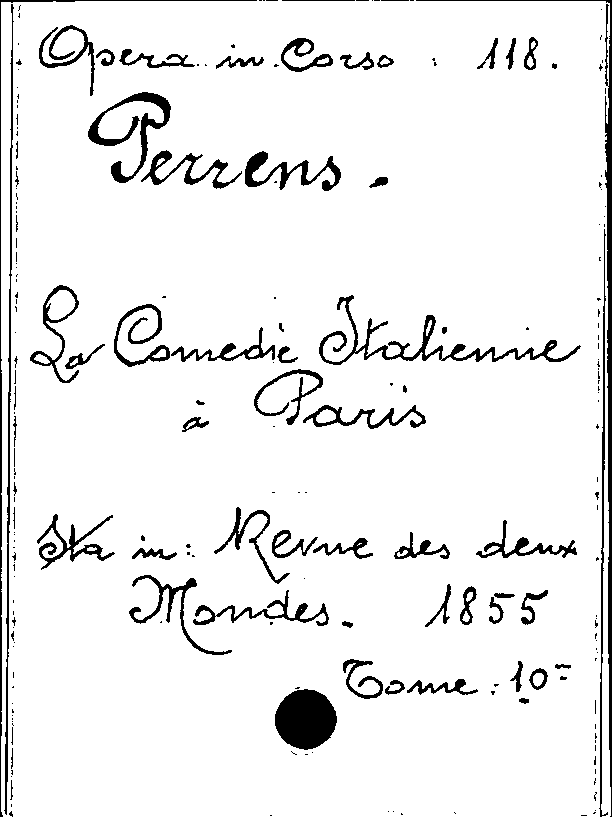 Opera in Corso : 118.
Perrens.
La Comedie Italienne
à Paris
Sta in: Revue des deux
Mondes. 1855
Tome : 10=